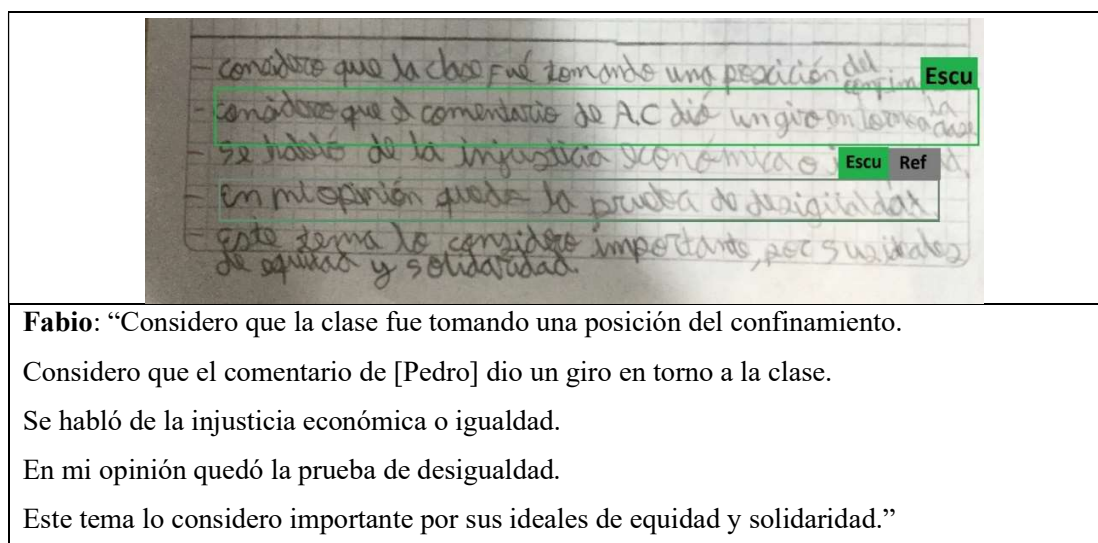 - considero que la clase fué tomando una posición del
Escu
- considero que el comentario de A.C dió un giro en torno a la clase
- se habló de la injusticia económica o
Escu Ref
- en mi opinión quedo la prueba de desigualdad
- este tema lo considero importante, por sus ideales
de equidad y solidaridad.
Fabio: “Considero que la clase fue tomando una posición del confinamiento.
Considero que el comentario de [Pedro] dio un giro en torno a la clase.
Se habló de la injusticia económica o igualdad.
En mi opinión quedó la prueba de desigualdad.
Este tema lo considero importante por sus ideales de equidad y solidaridad.”